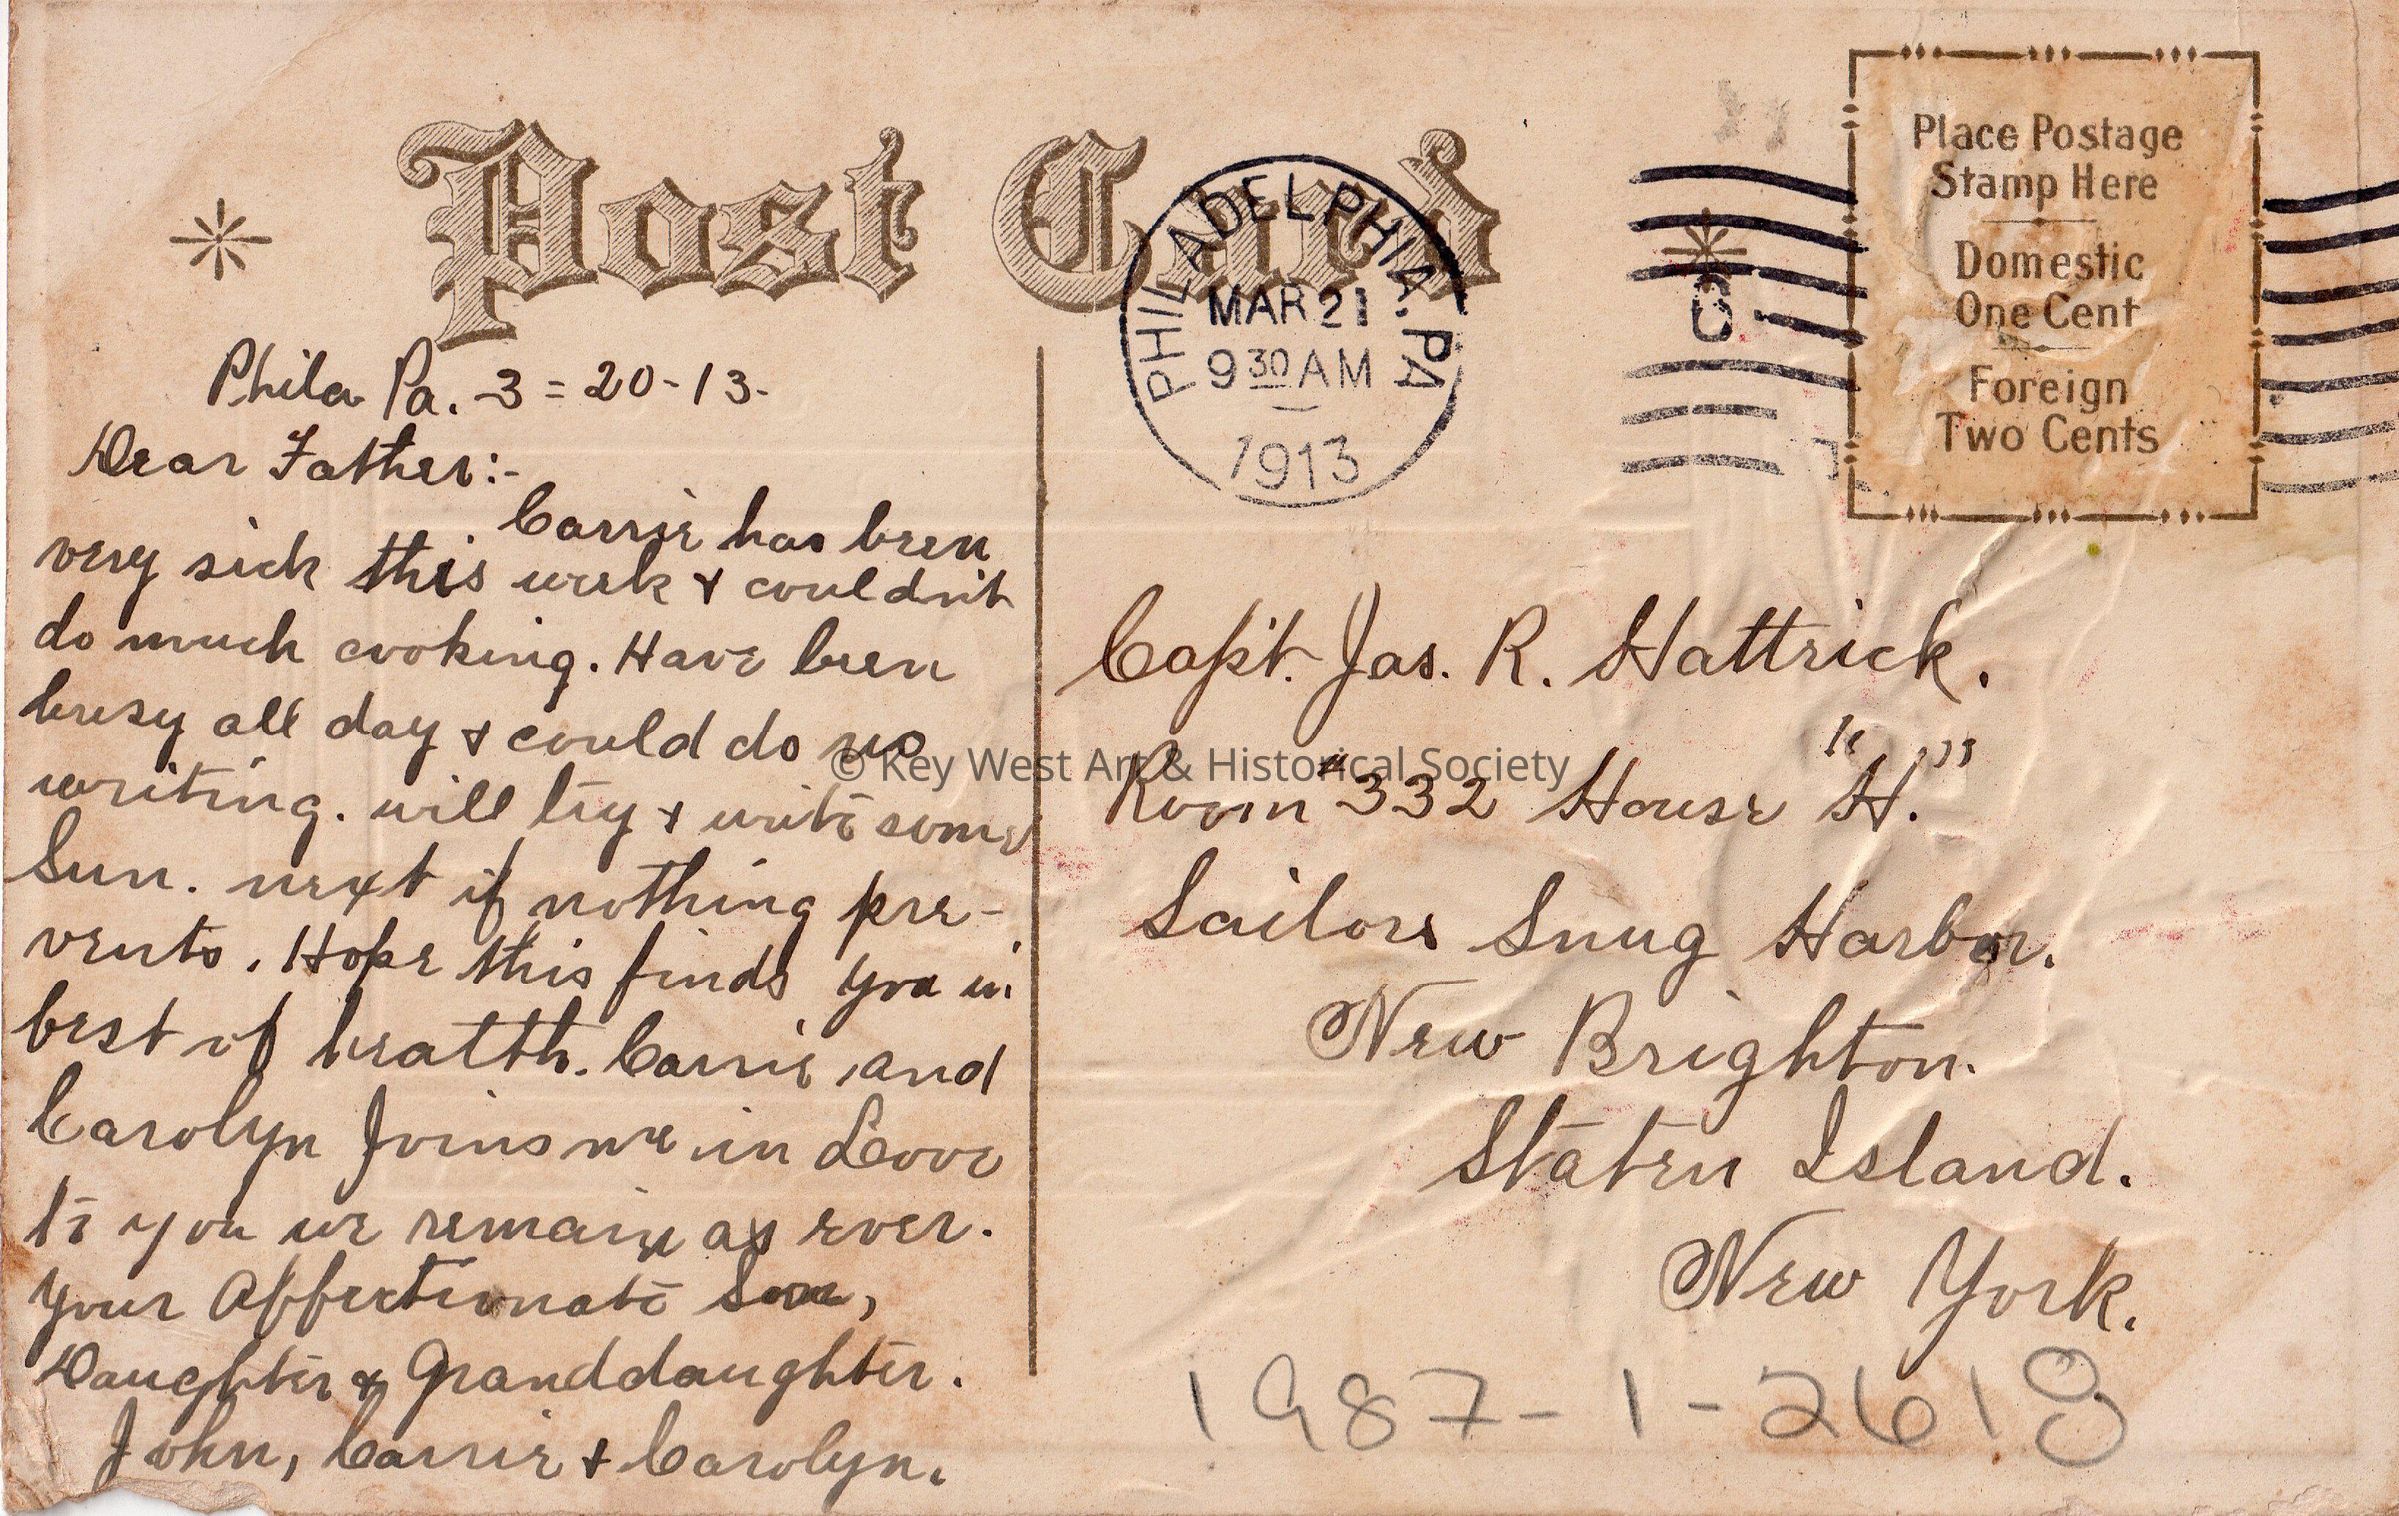 Post Card
PHILADELPHIA. PA
MAR 21
9 30 AM
1913
Place Postage
Stamp Here
Domestic
One Cent
Foreign
Two Cents
Phila Pa. -3 = 20 - 13 -
Dear Father:-
Carrie has been
very sick this week & couldn't
do much cooking. Have been
busy all day & could do no
writing. will try & write some
Sun. next if nothing pre-
vents. Hope this finds you in
best of health. Carrie and
Carolyn Joins me in Love
to you we remain as ever.
Your Affectionate Son,
Daughter & Granddaughter.
John, Carrie & Carolyn.
Capt. Jas. R. Hattrick.
Room "332 House "H."
Sailors Snug Harbor.
New Brighton.
Staten Island.
New York.
1987-1-2618
© Key West Art & Historical Society